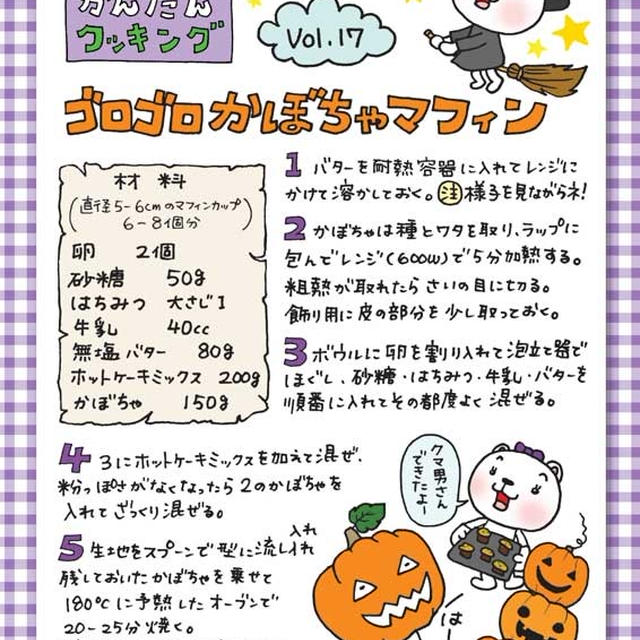 かんたん
クッキング
Vol.17
ゴロゴロかぼちゃマフィン
材料
(直径5-6cmのマフィンカップ
6-8個分)
卵 2個
砂糖 50g
はちみつ 大さじ1
牛乳 40cc
無塩バター 80g
ホットケーキミックス 200g
かぼちゃ 150g
1 バターを耐熱容器に入れてレンジに
かけて溶かしておく。注様子を見ながらネ!
2 かぼちゃは種とワタを取り、ラップに
包んでレンジ(600W)で5分加熱する。
粗熱が取れたらさいの目に切る。
飾り用に皮の部分を少し取っておく。
3 ボウルに卵を割り入れて泡立て器で
ほぐし、砂糖・はちみつ・牛乳・バターを
順番に入れてその都度よく混ぜる。
4 3にホットケーキミックスを加えて混ぜ、
粉っぽさがなくなったら2のかぼちゃを
入れてざっくり混ぜる。
5 生地をスプーンで型に流し入れ
残しておいたかぼちゃを乗せて
180℃に予熱したオーブンで
20-25分焼く。
クマ男さん
できたよー
は